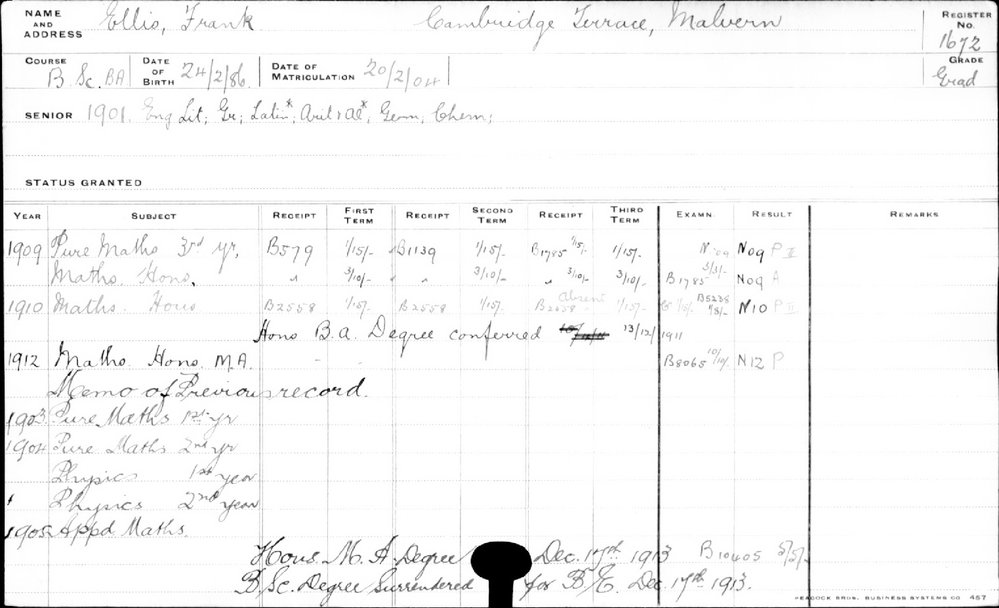 NAME AND ADDRESS Ellis, Frank Cambridge Terrace, Malvern REGISTER No. 1672
COURSE B. Sc. BA DATE OF BIRTH 24/2/86 DATE OF MATRICULATION 20/2/04 GRADE Grad
SENIOR 1901. Eng Lit; Gr; Latin*; Arit & Al*, Germ; Chem;
STATUS GRANTED
YEAR SUBJECT RECEIPT FIRST TERM RECEIPT SECOND TERM RECEIPT THIRD TERM EXAMN. RESULT REMARKS
1909 Pure Maths 3rd yr, B579 1/15/- B1139 1/15/- B1785 1/15/- 1/15/- N'09 N09 P II
Maths. Hons, " 3/10/- " 3/10/- " 3/10/- 3/10/- B1785 3/3/- N09 A
1910 Maths. Hons B2558 1/15/- B2558 1/15/- B2658 Absent 1/15/- B5238 N10 P II
Hons B.a. Degree conferred 13/12/1911
1912 Maths. Hons. M.A. - - B8065 10/10/- N12 P
Memo of Previous record.
1903 Pure Maths 1st yr
1904 Pure Maths 2nd yr
Physics 1st year
Physics 2nd year
1905 Appd Maths.
Hons. M. A. Degree Dec. 17th 1913 B10405 5/5/-
B. Sc. Degree Surrendered for B/E. Dec. 17th 1913.
PEACOCK BROS. BUSINESS SYSTEMS CO 457